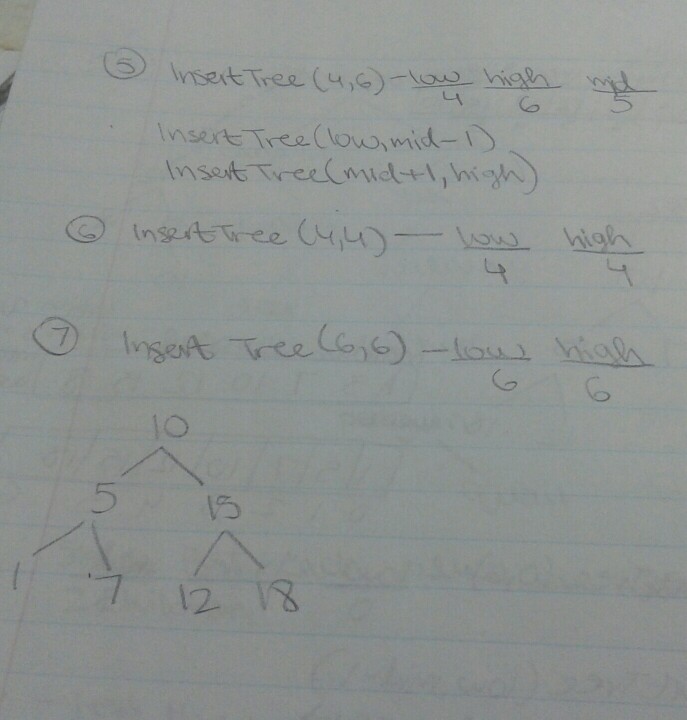 ⑤ InsertTree (4,6) - low high mid
4 6 5
InsertTree(low, mid-1)
InsertTree(mid+1, high)
⑥ InsertTree (4,4) — low high
4 4
⑦ Insert Tree (6,6) - low high
6 6
10
5 15
1 7 12 18